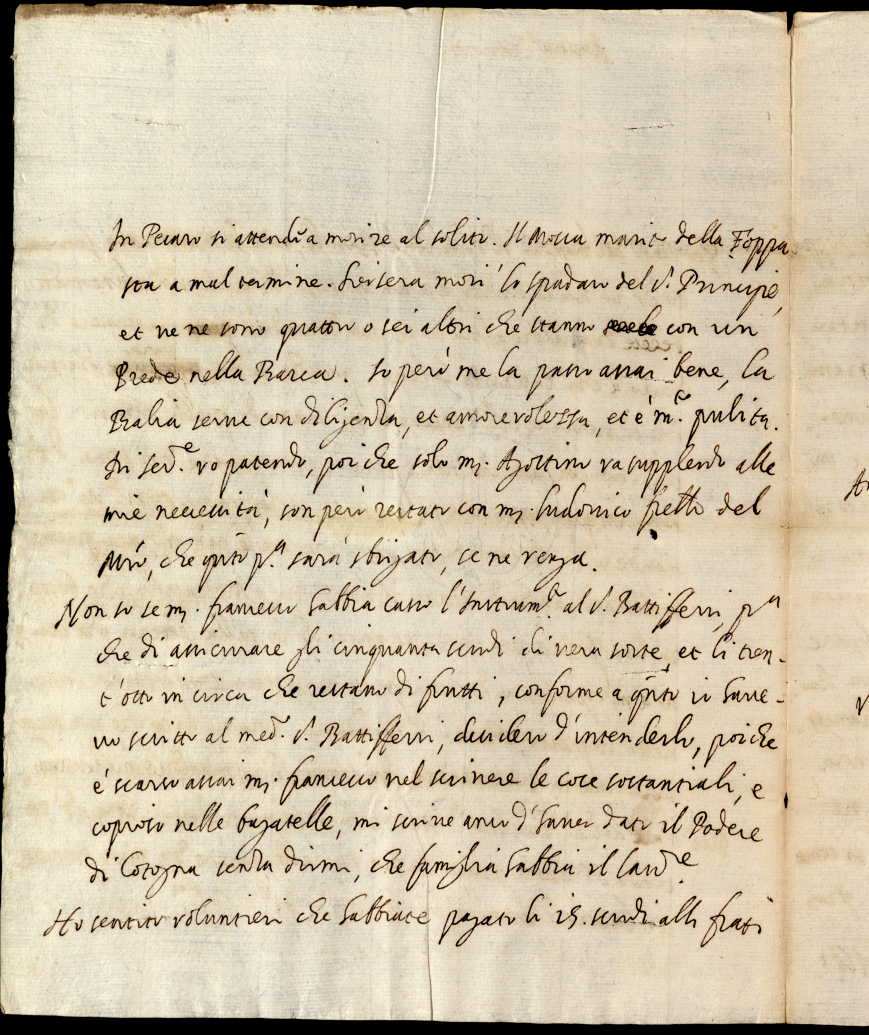 In Pesaro si attende a morire al solito. Il Mosca marito della Foppa
sta a mal termine. Hiersera morì lo spadaro del S. Principe,
et ve ne sono quattro o sei altri che stanno con un
Piede nella Barca. Io però me la passo assai bene, la
Balia serve con diligenza, et amorevolezza, et è m.º pulita.
Di ser.e vo patendo, poi che solo m. Agostino va supplendo alle
mie necessità, son però restato con m. Ludovico frello del
Mro, che qñto p.a sarà sbrigato, se ne venga.
Non so se m. francesco habbia casso l'Instrum.to al S. Battiferri, p.a
che di assicurare gli cinquanta scudi di vera sorte, et li tren-
t'otto in circa che restano di frutti, conforme a qñto io have-
vo scritto al med.o S. Battiferri, desidero d'intenderlo, poi che
è scarso assai m. francesco nel scrivere le cose sostantiali, e
copioso nelle bagatelle, mi scrive anco d'haver dato il Podere
di Cotogna senza dirmi, che famiglia habbia il lav.re
Ho sentito voluntieri che habbiate pagato li 15. scudi alli frati